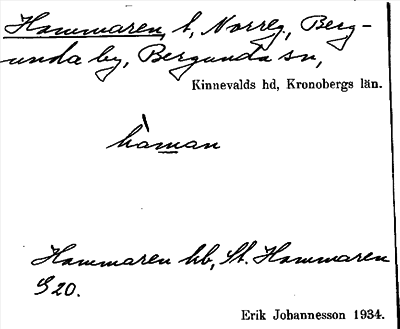 Hammaren, t, Norreg, Berg-
unda by, Bergunda sn,
Kinnevalds hd, Kronobergs län.
hàman
Hammaren hb, St. Hammaren
S 20.
Erik Johannesson 1934.